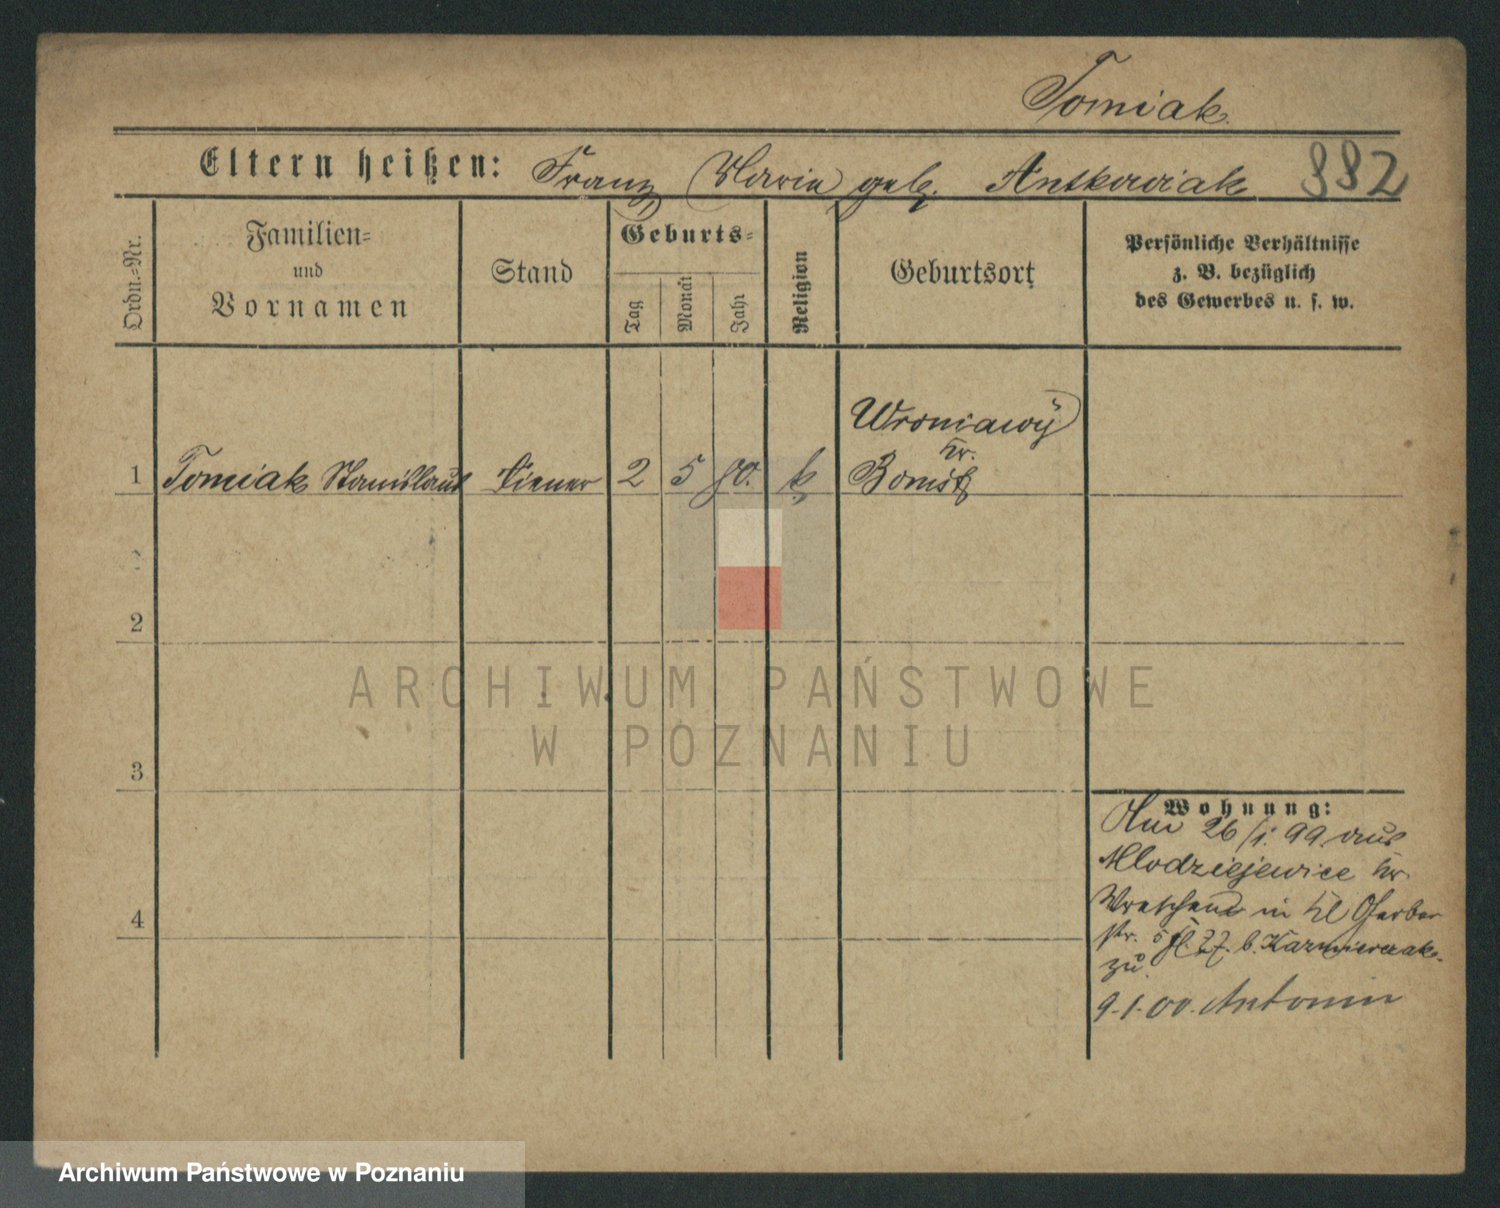 Tomiak
Eltern heißen: Franz Maria geb. Antkowiak 882
Ordn.=Nr.
Familien=
und
Vornamen
Stand
Geburts=
Tag
Monat
Jahr
Religion
Geburtsort
Persönliche Verhältnisse
z. B. bezüglich
des Gewerbes u. s. w.
Wroniawy
Kr.
1 Tomiak Stanislaus Diener 2 5 80. k Bomst
2
3
4
ARCHIWUM PAŃSTWOWE
W POZNANIU
Wohnung:
26/1. 99 aus
Mlodziejewice Kr.
Wreschen in Kl Gerber
str. b. Kazmierczak
zu.
9.1.00. Antonin
Archiwum Państwowe w Poznaniu